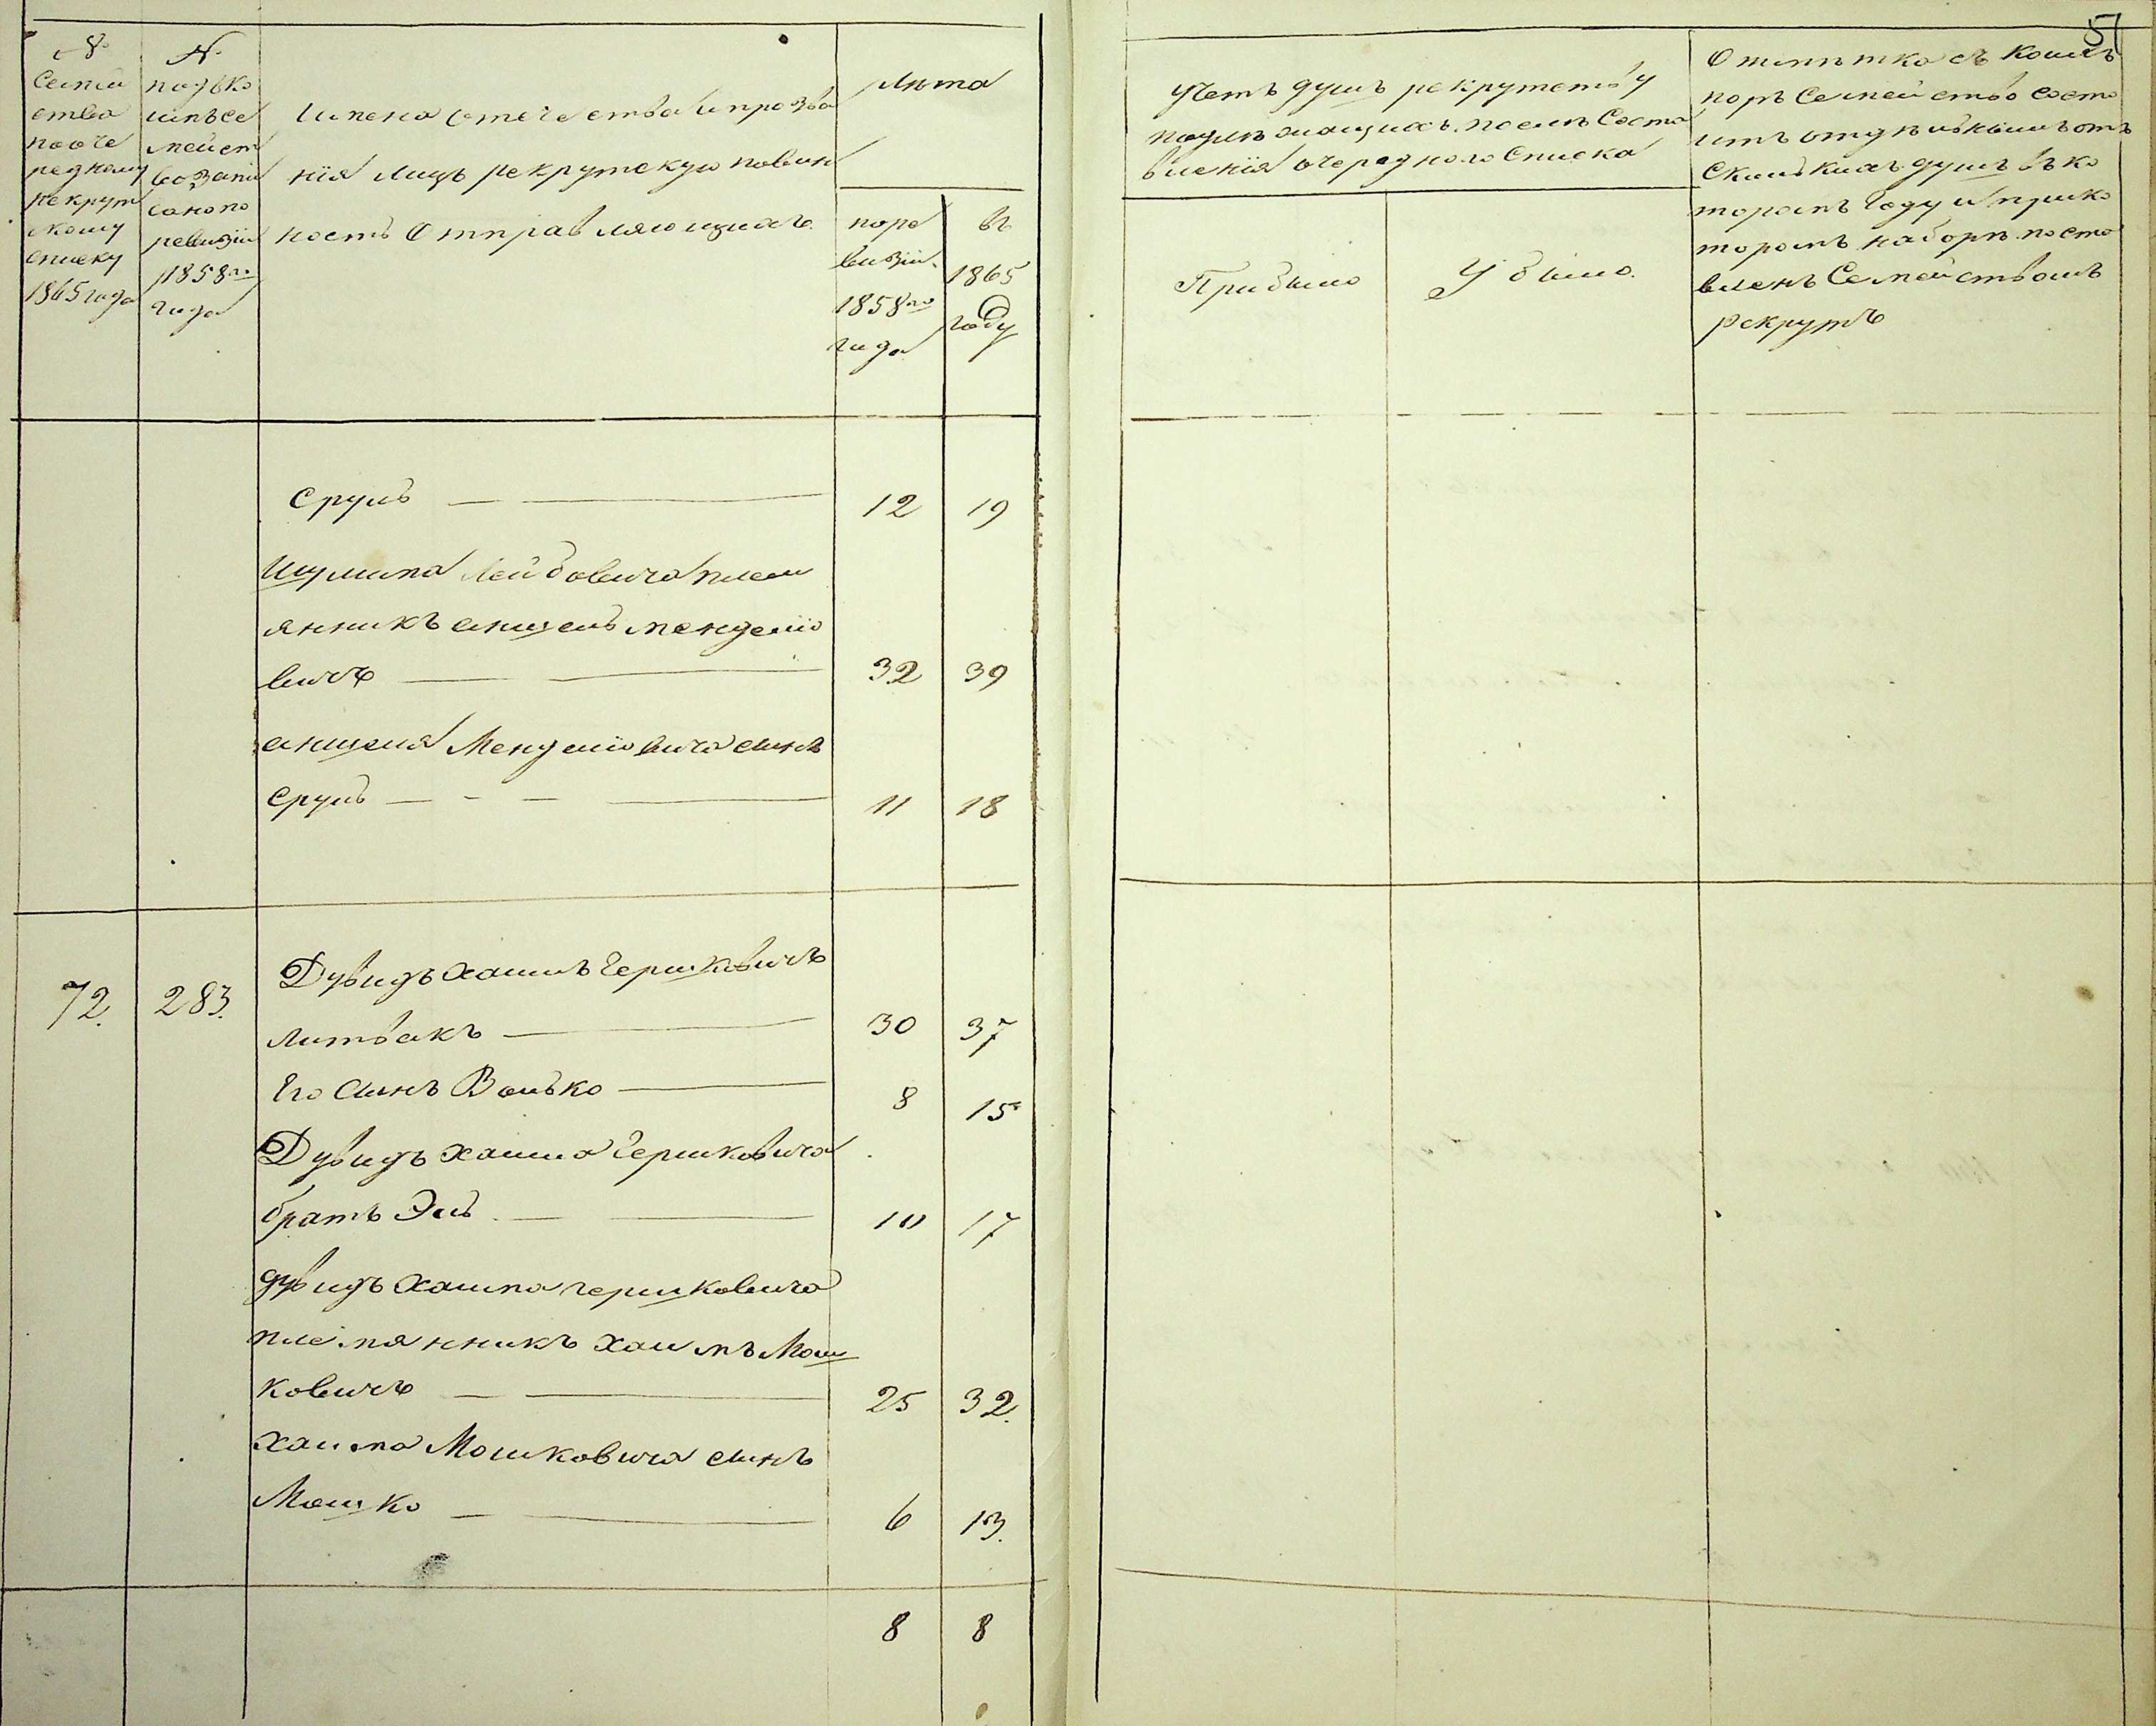 №
Семей
ства
по оче
редному
рекрут
скому
списку
1865 года
№
подъко
имъ се
мейст
во запи
сано по
ревизіи
1858го
года
Имена отечества и прозва
нія лицъ рекрутскую повин
ность отправляющихъ
Лѣта
поре
визіи
1858го
года
въ
1865
году
57
Учетъ душъ рекрутству
подлѣжащихъ после соста
вленія очереднаго списка
Прибыло
Убыло.
Отмѣтка съ коихъ
поръ семейство состо
итъ отдѣльнымъ отъ
сколькихъ душъ въ ко
торомъ году и при ко
торомъ наборѣ поста
вленъ семействомъ
рекрутъ
Сруль 12 19
Шулима Лейбовича плем
янникъ аншель менделіо
вичъ 32 39
аншеля Менделіовича сынъ
Сруль 11 18
72. 283. Дувидъ Хаимъ Гершковичъ
Литвакъ 30 37
Его сынъ Волько 8 15
Дувидъ хаима Гершковича
братъ Эль 10 17
дувидъ Хаима гершковича
племянникъ Хаимъ Мош
ковичъ 25 32.
Хаима Мошковича сынъ
Мошко 6 13.
8 8